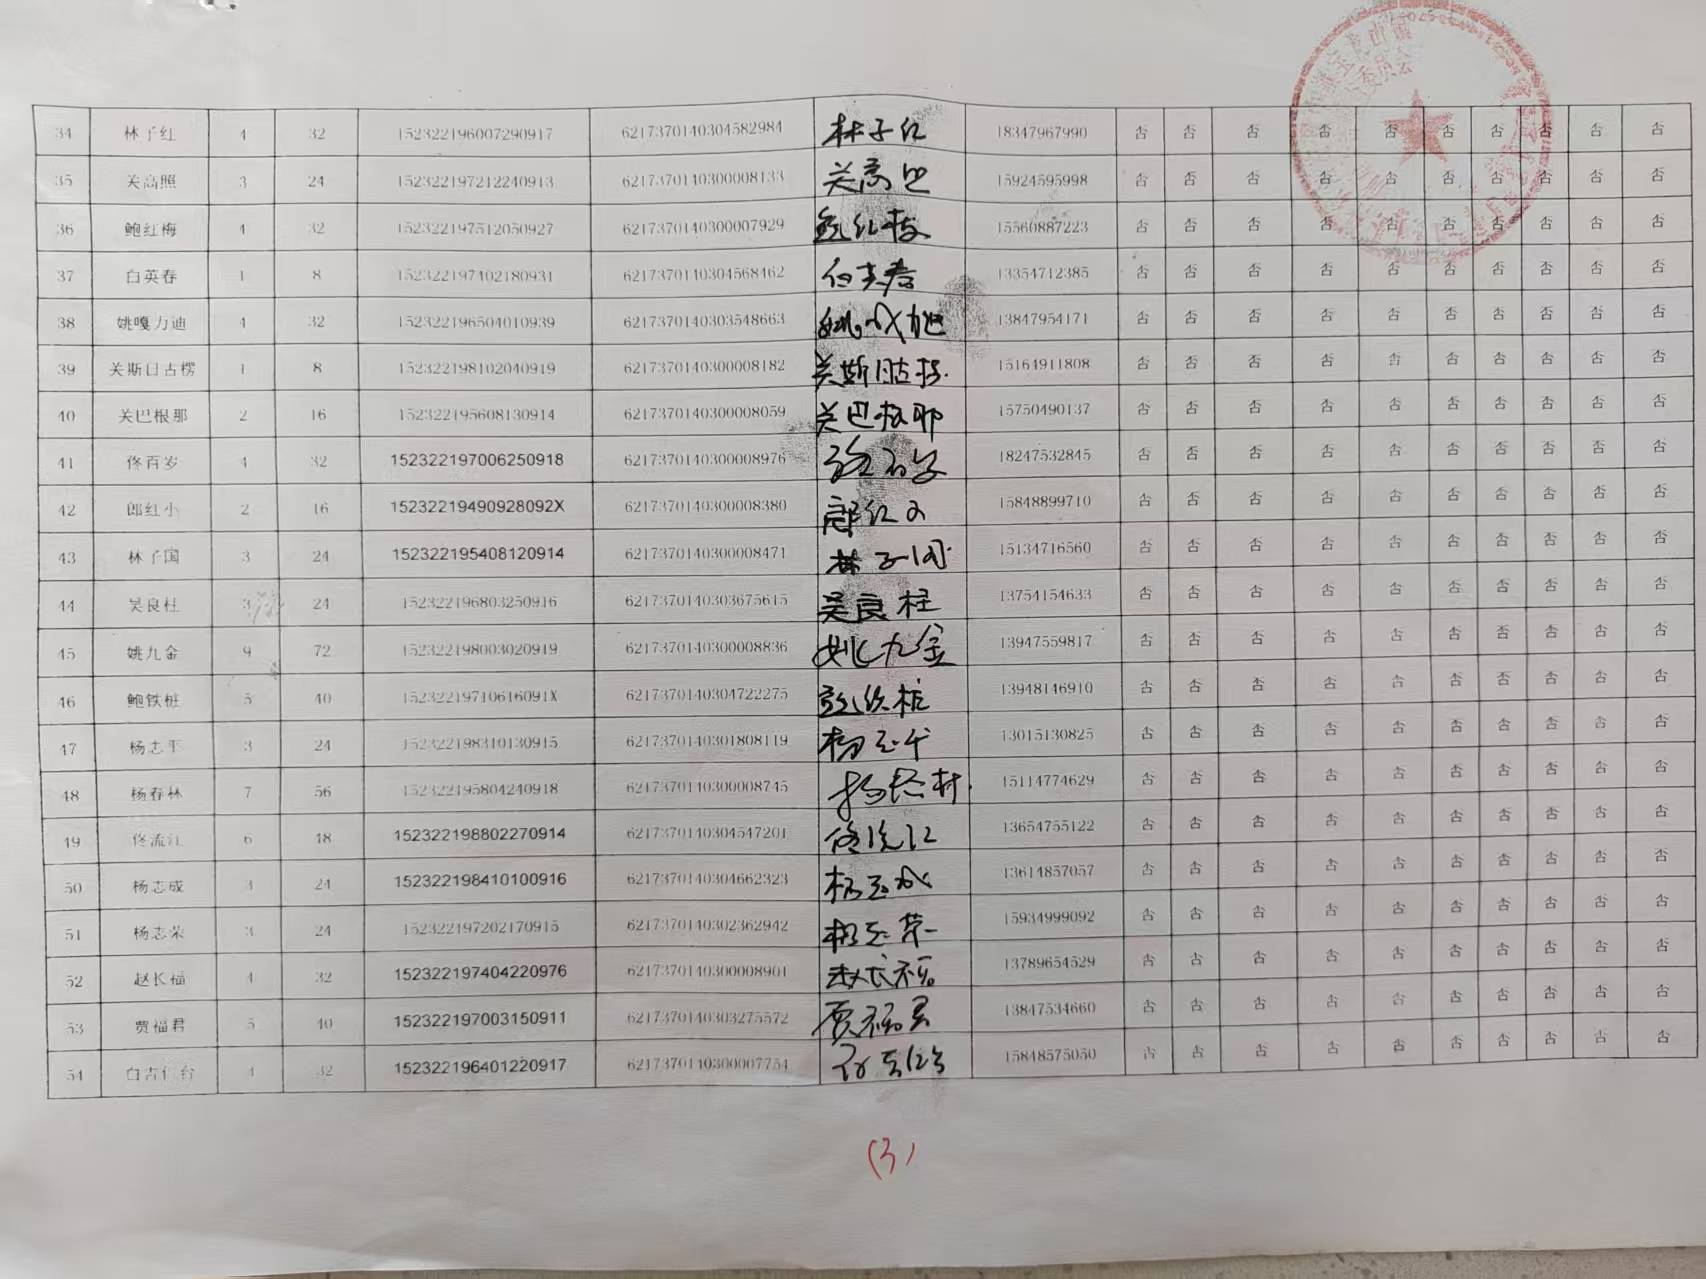 34 林子红 4 32 152322196007290917 6217370140304582984 林子红 18347967990 否 否 否 否 否 否 否 否 否
35 关高照 3 24 152322197212240913 6217370140300008133 关高 15924595998 否 否 否 否 否 否 否 否 否
36 鲍红梅 4 32 152322197512050927 6217370140300007929 鲍红梅 15560887223 否 否 否 否 否 否 否 否 否
37 白英春 1 8 152322197402180931 6217370140304568462 白英春 13354712385 否 否 否 否 否 否 否 否 否
38 姚嘎力迪 4 32 152322196504010939 6217370140303548663 13847954171 否 否 否 否 否 否 否 否 否
39 关斯日古楞 1 8 152322198102040919 6217370140300008182 关斯日古楞 15164911808 否 否 否 否 否 否 否 否 否
40 关巴根那 2 16 152322195608130914 6217370140300008059 关巴根那 15750490137 否 否 否 否 否 否 否 否 否
41 佟百岁 4 32 152322197006250918 6217370140300008976 18247532845 否 否 否 否 否 否 否 否 否
42 郎红小 2 16 15232219490928092X 6217370140300008380 郎红小 15848899710 否 否 否 否 否 否 否 否 否
43 林子国 3 24 152322195408120914 6217370140300008471 林子国 15134716560 否 否 否 否 否 否 否 否 否
44 吴良柱 3 24 152322196803250916 6217370140303675615 吴良柱 13754154633 否 否 否 否 否 否 否 否 否
45 姚九金 9 72 152322198003020919 6217370140300008836 姚九金 13947559817 否 否 否 否 否 否 否 否 否
46 鲍铁桩 5 40 15232219710616091X 6217370140304722275 鲍铁桩 13948146910 否 否 否 否 否 否 否 否 否
47 杨志平 3 24 152322198310130915 6217370140301808119 杨志平 13015130825 否 否 否 否 否 否 否 否 否
48 杨春林 7 56 152322195804240918 6217370140300008745 杨春林 15114774629 否 否 否 否 否 否 否 否 否
49 佟流江 6 48 152322198802270914 6217370140304547201 佟流江 13654755122 否 否 否 否 否 否 否 否 否
50 杨志成 3 24 152322198410100916 6217370140304662323 杨志成 13614857057 否 否 否 否 否 否 否 否 否
51 杨志荣 3 24 152322197202170915 6217370140302362942 杨志荣 15934999092 否 否 否 否 否 否 否 否 否
52 赵长福 4 32 152322197404220976 6217370140300008901 赵长福 13789654529 否 否 否 否 否 否 否 否 否
53 贾福君 5 40 152322197003150911 6217370140303275572 贾福君 13847534660 否 否 否 否 否 否 否 否 否
54 白吉仁台 4 32 152322196401220917 6217370140300007754 15848575050 否 否 否 否 否 否 否 否 否
(3)